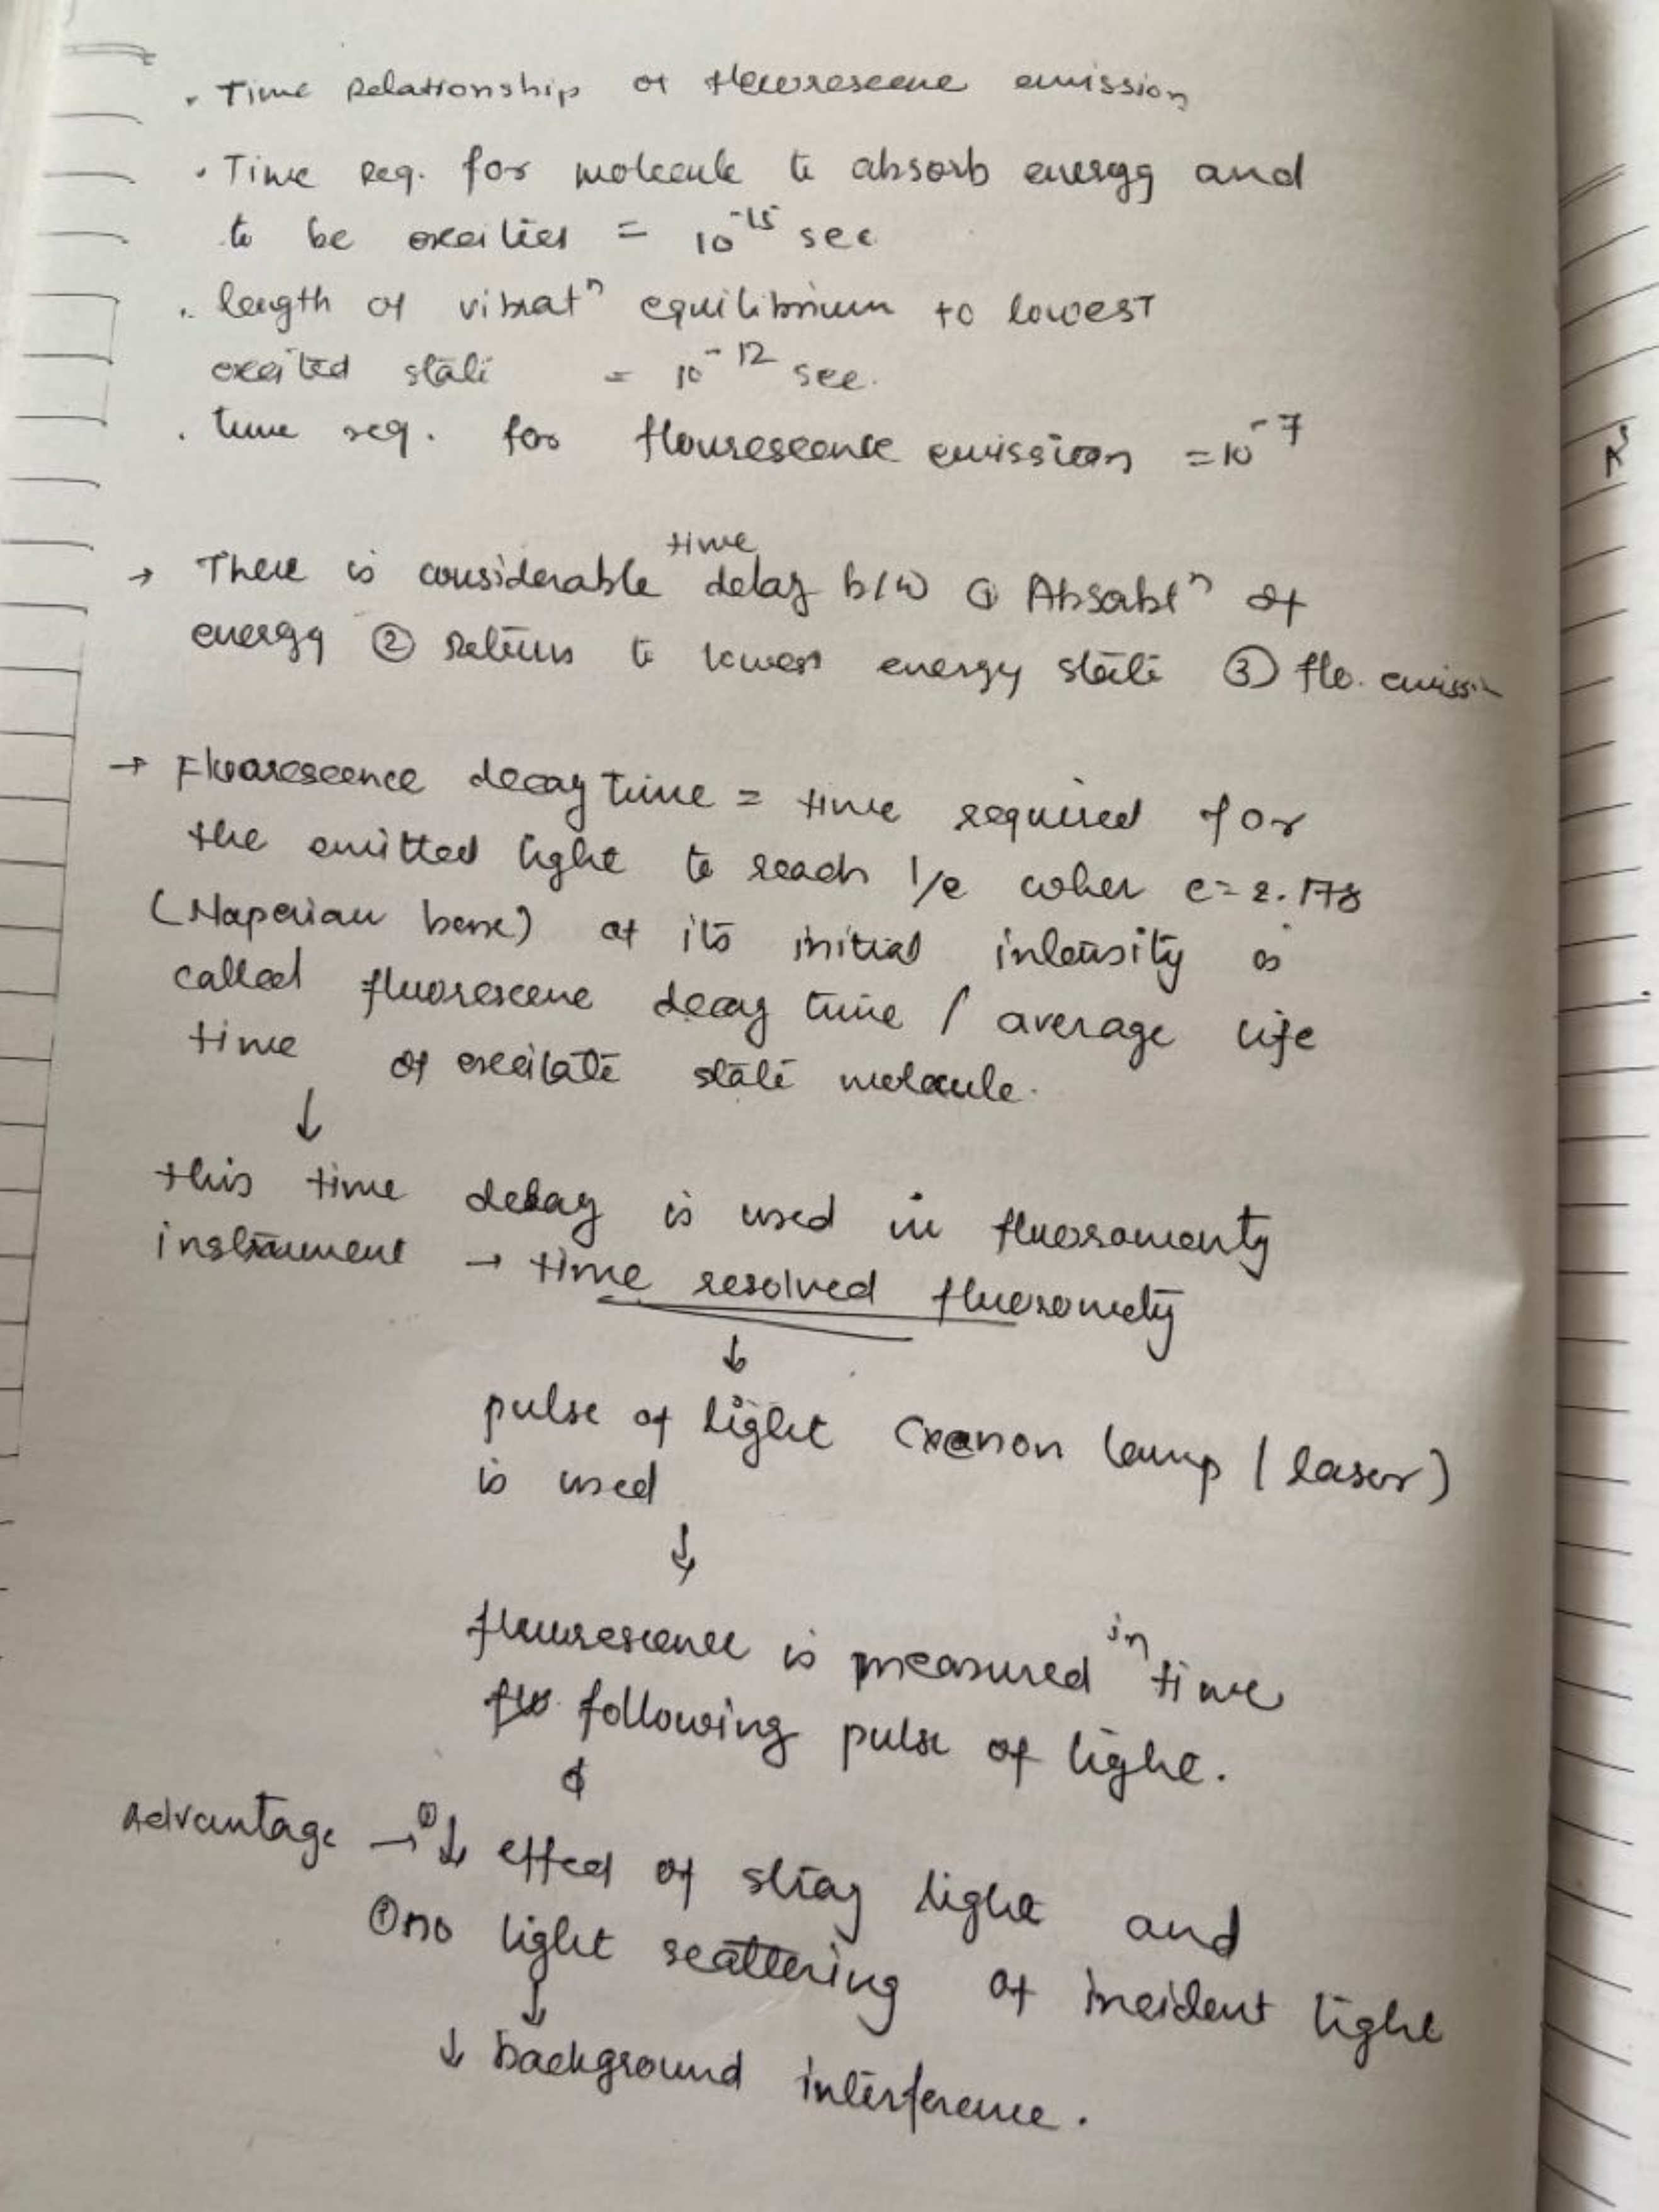 . Time Relationship of flourescene emission
. Time Req. for molecule to absorb energy and
to be excities = 10^-15 sec
. length of vibratⁿ equilibrium to lowest
excited state = 10^-12 sec.
. time req. for flourescence emission = 10^-7
→ There is considerable time delay b/w ① Absorbtⁿ of
energy ② return to lowest energy state ③ flo. emission
→ Fluorescence decay time = time required for
the emitted light to reach 1/e wher e = 2.178
(Naperian base) of its initial intensity is
called fluorescene decay time / average life
time of excitate state molecule.
↓
this time delay is used in fluoromenty
instrument → time resolved fluorometry
↓
pulse of light (xenon lamp / laser)
is used
↓
flourescence is measured in time
following pulse of light.
Advantage → ① ↓ effect of stray light and
② no light scattering of incident light
↓
↓ background interference.